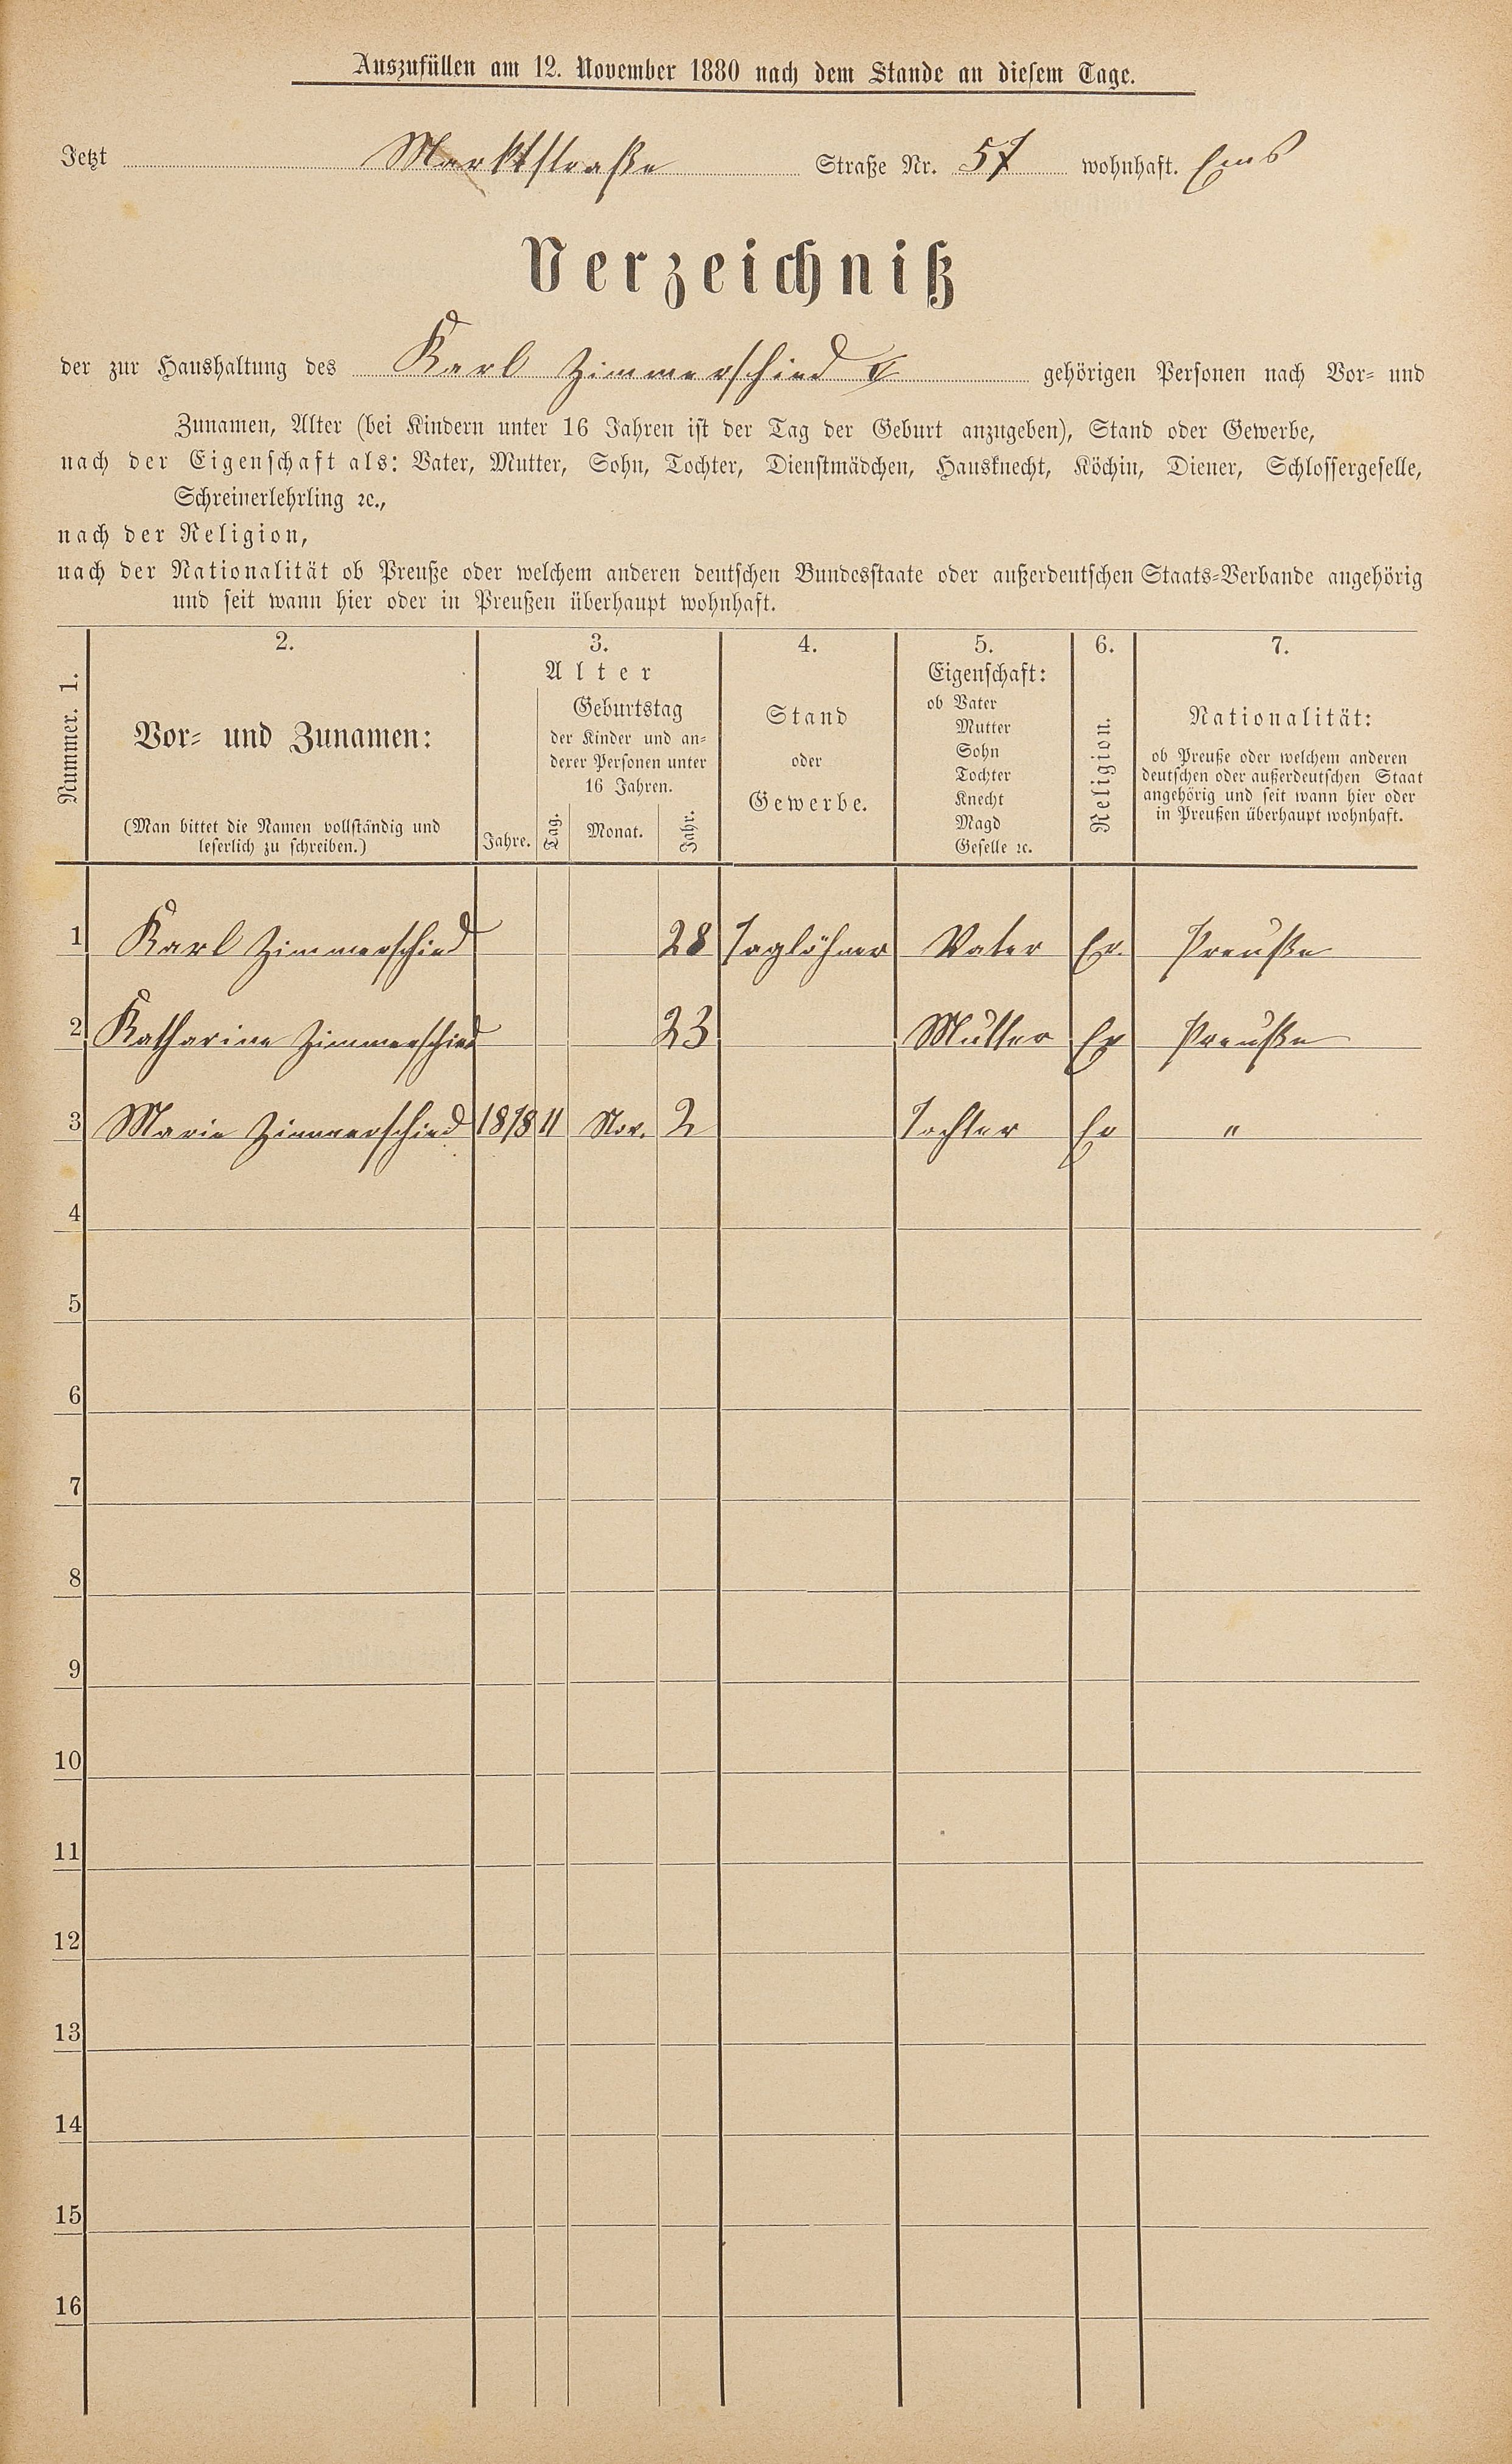 Auszufüllen am 12. November 1880 nach dem Stande an diesem Tage.
Jetzt Marktstraße Straße Nr. 57 wohnhaft. Ems
Verzeichniß
der zur Haushaltung des Karl Zimmerschied gehörigen Personen nach Vor- und
Zunamen, Alter (bei Kindern unter 16 Jahren ist der Tag der Geburt anzugeben), Stand oder Gewerbe,
nach der Eigenschaft als: Vater, Mutter, Sohn, Tochter, Dienstmädchen, Hausknecht, Köchin, Diener, Schlossergeselle,
Schreinerlehrling ꝛc.,
nach der Religion,
nach der Nationalität ob Preuße oder welchem anderen deutschen Bundesstaate oder außerdeutschen Staats-Verbande angehörig
und seit wann hier oder in Preußen überhaupt wohnhaft.
Nummer. 1.
2.
Vor- und Zunamen:
(Man bittet die Namen vollständig und
leserlich zu schreiben.)
3.
Alter
Jahre.
Geburtstag
der Kinder und an-
derer Personen unter
16 Jahren.
Tag. Monat. Jahr.
4.
Stand
oder
Gewerbe.
5.
Eigenschaft:
ob Vater
Mutter
Sohn
Tochter
Knecht
Magd
Geselle ꝛc.
6.
Religion.
7.
Nationalität:
ob Preuße oder welchem anderen
deutschen oder außerdeutschen Staat
angehörig und seit wann hier oder
in Preußen überhaupt wohnhaft.
1 Karl Zimmerschied 28 Taglöhner Vater Ev. Preuße
2 Katharine Zimmerschied 23 Mutter Ev Preuße
3 Marie Zimmerschied 1878 11 Nov. 2 Tochter Ev "
4
5
6
7
8
9
10
11
12
13
14
15
16